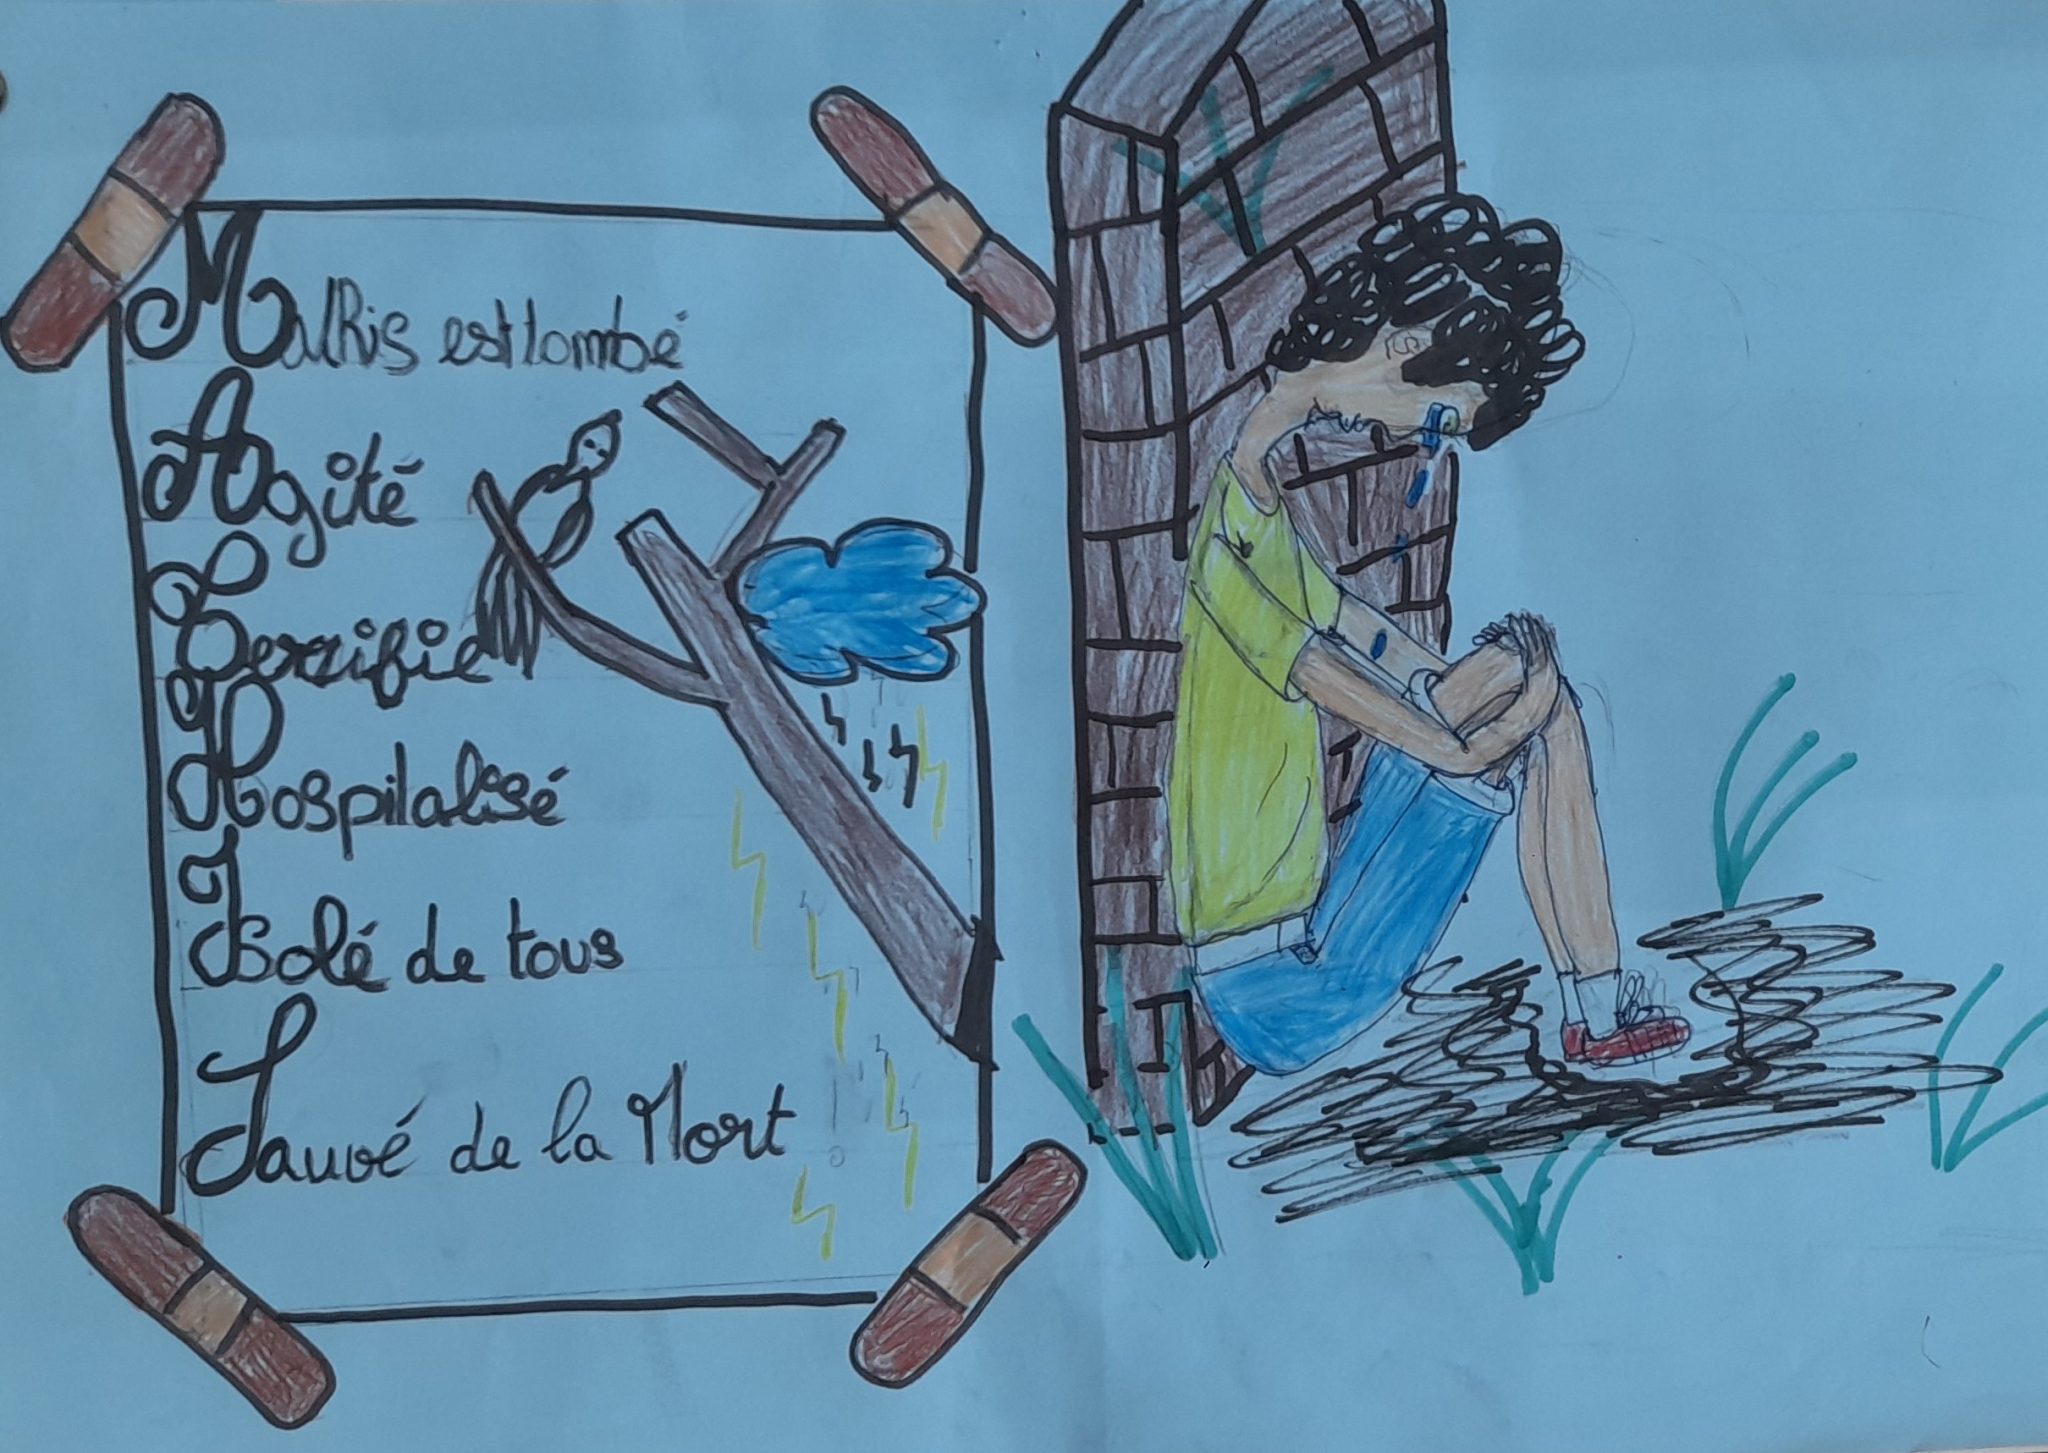 Mathis est tombé
Agité
Terrifié
Hospitalisé
Isolé de tous
Sauvé de la Mort !